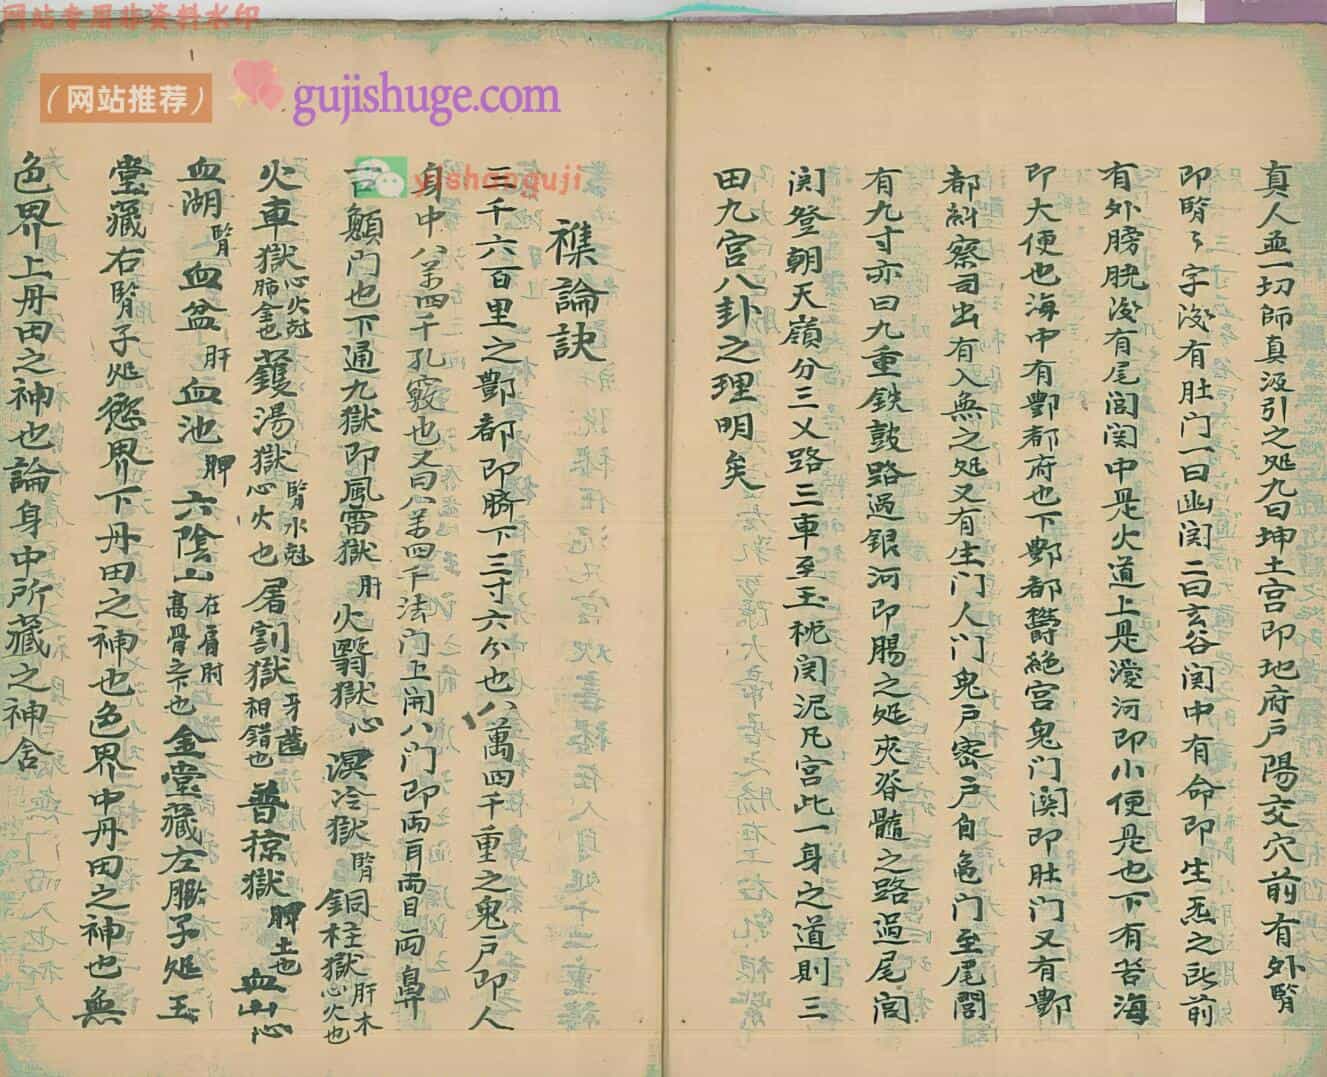 网站专用非资料水印
(网站推荐)
gujishuge.com
yishanguji
真人盃一切師真汲引之処九曰坤土宫即地府戶陽交穴前有外腎
即腎々字後有肚门一曰幽関二曰玄谷関中有命即生炁之所前
有外膀胱後有尾闾関中是火道上是濙河即小便是也下有苦海
即大便也海中有酆都府也下酆都欝絶宫鬼门関即肚门又有酆
都糾察司出有入無之処又有生门人门鬼戶宻戶自危门至尾閭
有九寸亦曰九重鉄鼓路過银河即腸之処夾脊髓之路過尾闾
関登朝天嶺分三乂路三車至玉枕関泥凡宫此一身之道則三
田九宫八卦之理明矣
襍論訣
三千六百里之酆都即臍下三寸六分也八萬四千重之鬼戶即人
身中八萬四千孔竅也又曰八萬四千法门上開八门即両耳両目両鼻
舌顖门也下通九獄即風雷獄肝火翳獄心溟冷獄腎銅柱獄肝木心火也
火車獄心火尅肺金也鑊湯獄腎水尅心火也屠割獄牙齒相錯也普掠獄脾土也血山心
血湖腎血盆肝血池脾六陰山在肩肘高骨之下也金堂藏左腎子処玉
堂藏右腎子処慾界下丹田之神也色界中丹田之神也無
色界上丹田之神也論身中所藏之神舍